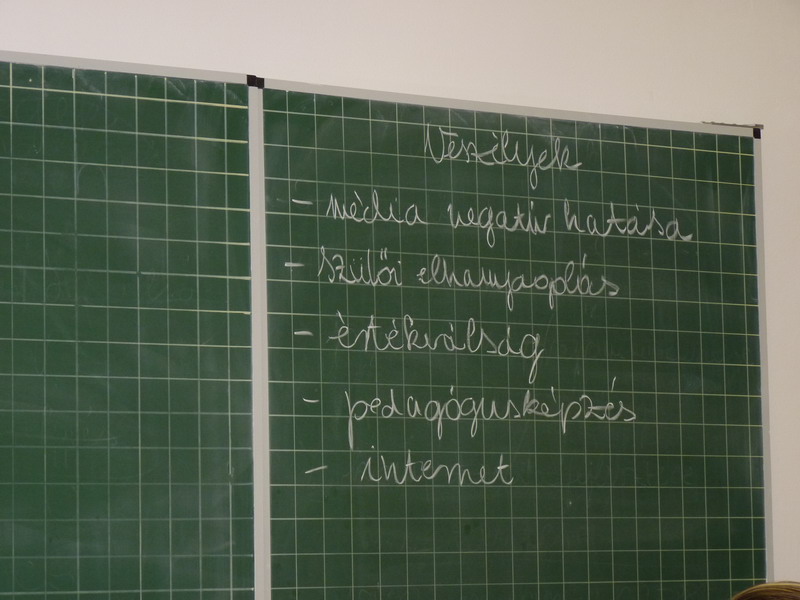 Veszélyek
- média negatív hatása
- Szülői elhanyagolás
- értékválság
- pedagógusképzés
- internet